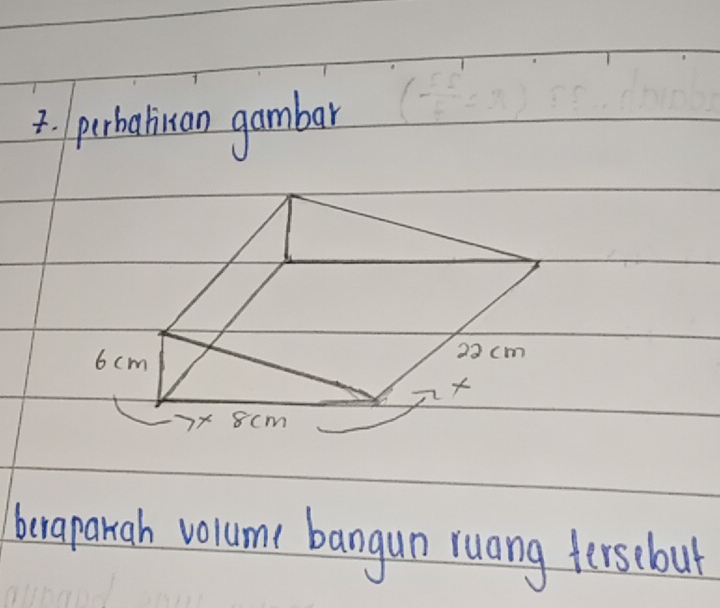 7. perhatikan gambar
6 cm
22 cm
x
x 8cm
berapakah volume bangun ruang tersebut